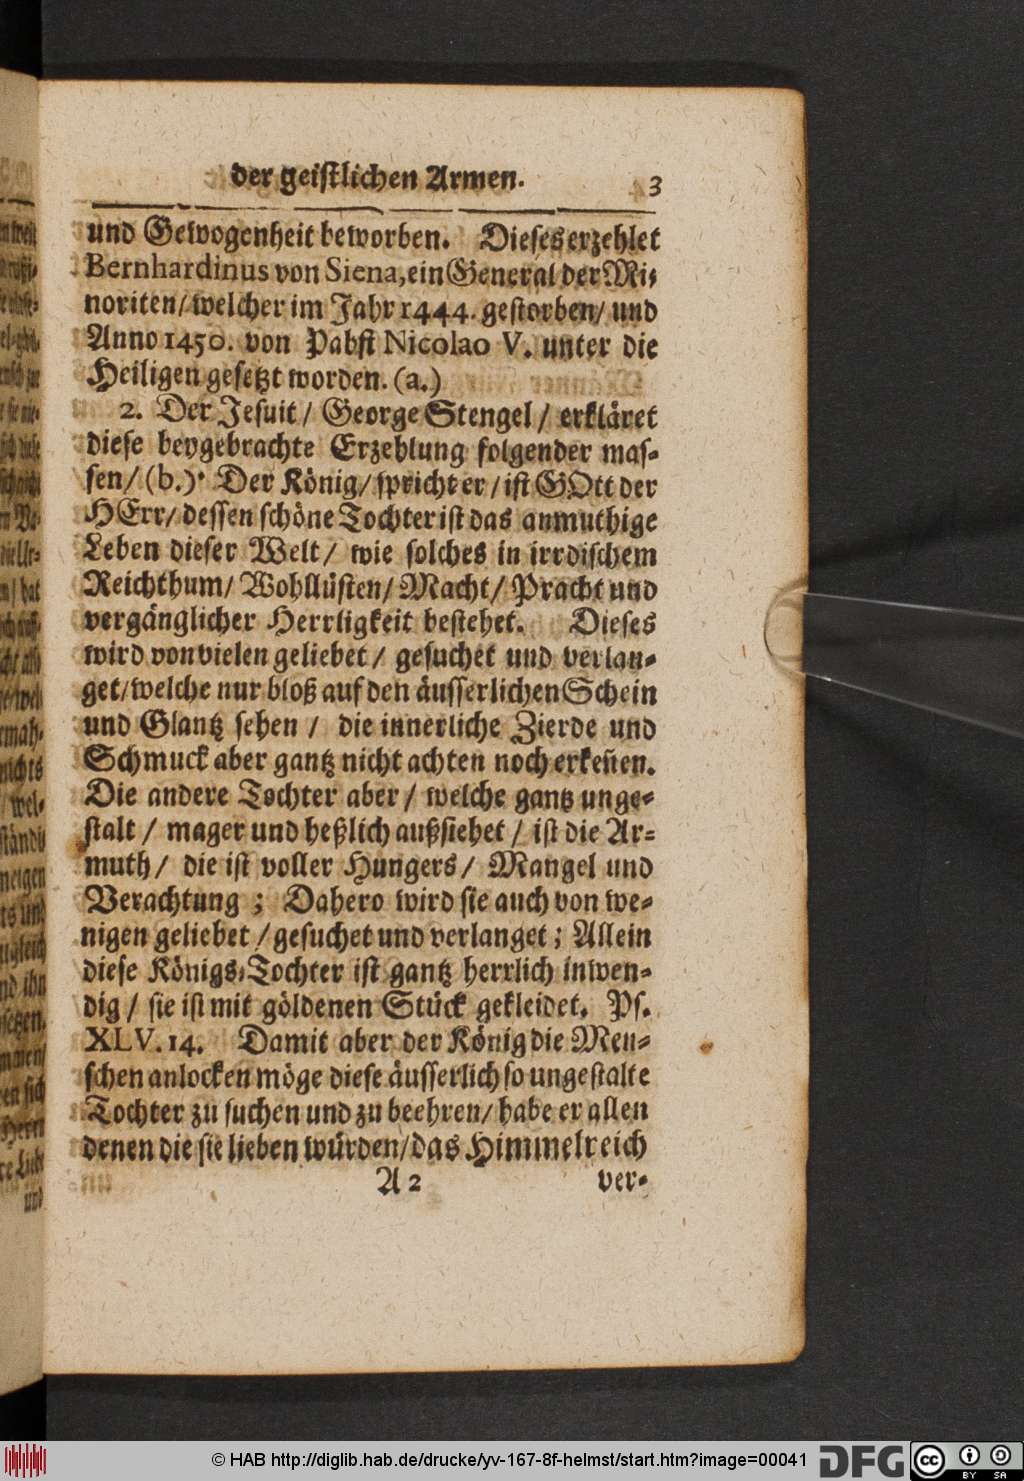 der geistlichen Armen. 3
und Gewogenheit beworben. Dieses erzehlet
Bernhardinus von Siena, ein General der Mi-
noriten/ welcher im Jahr 1444. gestorben/ und
Anno 1450. von Pabst Nicolao V. unter die
Heiligen gesetzt worden. (a.)
2. Der Jesuit / George Stengel / erkläret
diese beygebrachte Erzehlung folgender mas-
sen/ (b.) Der König/ spricht er / ist GOtt der
HErr/ dessen schöne Tochter ist das anmuthige
Leben dieser Welt/ wie solches in irrdischem
Reichthum/ Wohllüsten/ Macht/ Pracht und
vergänglicher Herrligkeit bestehet. Dieses
wird von vielen geliebet / gesuchet und verlan-
get/ welche nur bloß auf den äusserlichen Schein
und Glantz sehen / die innerliche Zierde und
Schmuck aber gantz nicht achten noch erkeñen.
Die andere Tochter aber / welche gantz unge-
stalt / mager und heßlich außsiehet / ist die Ar-
muth / die ist voller Hungers / Mangel und
Verachtung ; Dahero wird sie auch von we-
nigen geliebet / gesuchet und verlanget ; Allein
diese Königs-Tochter ist gantz herrlich inwen-
dig / sie ist mit göldenen Stück gekleidet. Ps.
XLV. 14. Damit aber der König die Men-
schen anlocken möge diese äusserlich so ungestalte
Tochter zu suchen und zu beehren/ habe er allen
denen die sie lieben würden/ das Himmelreich
A 2 ver-
© HAB http://diglib.hab.de/drucke/yv-167-8f-helmst/start.htm?image=00041
DFG
cc BY SA